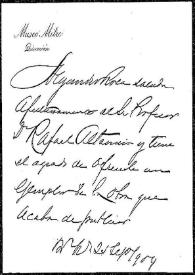 Museo Mitre
Dirección
Alejandro Rosa saluda
afectuosamente al Sr Profesor
D. Rafael Altamira y tiene
el agrado de ofrecerle un
Ejemplar de la obra que
acaba de publicar
Sept 1909